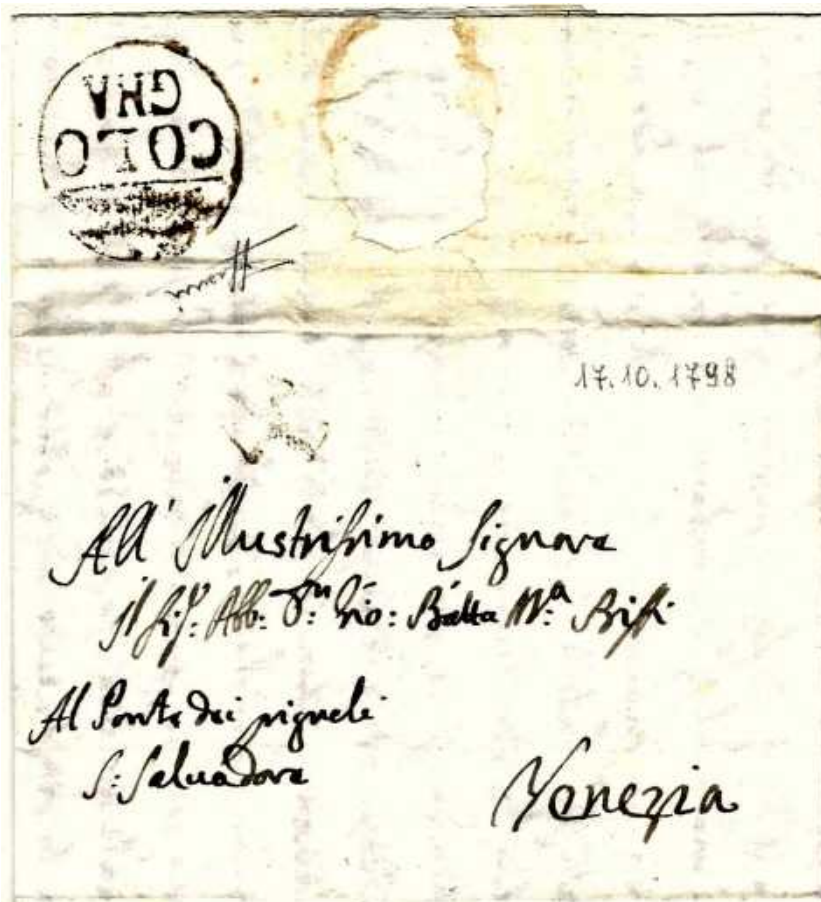 COLO
GNA
17.10.1798
All' Illustrissimo Signore
il Sig:r Abb: Gio: Batta
Al Ponte dei pignoli
S: Salvadore
Venezia